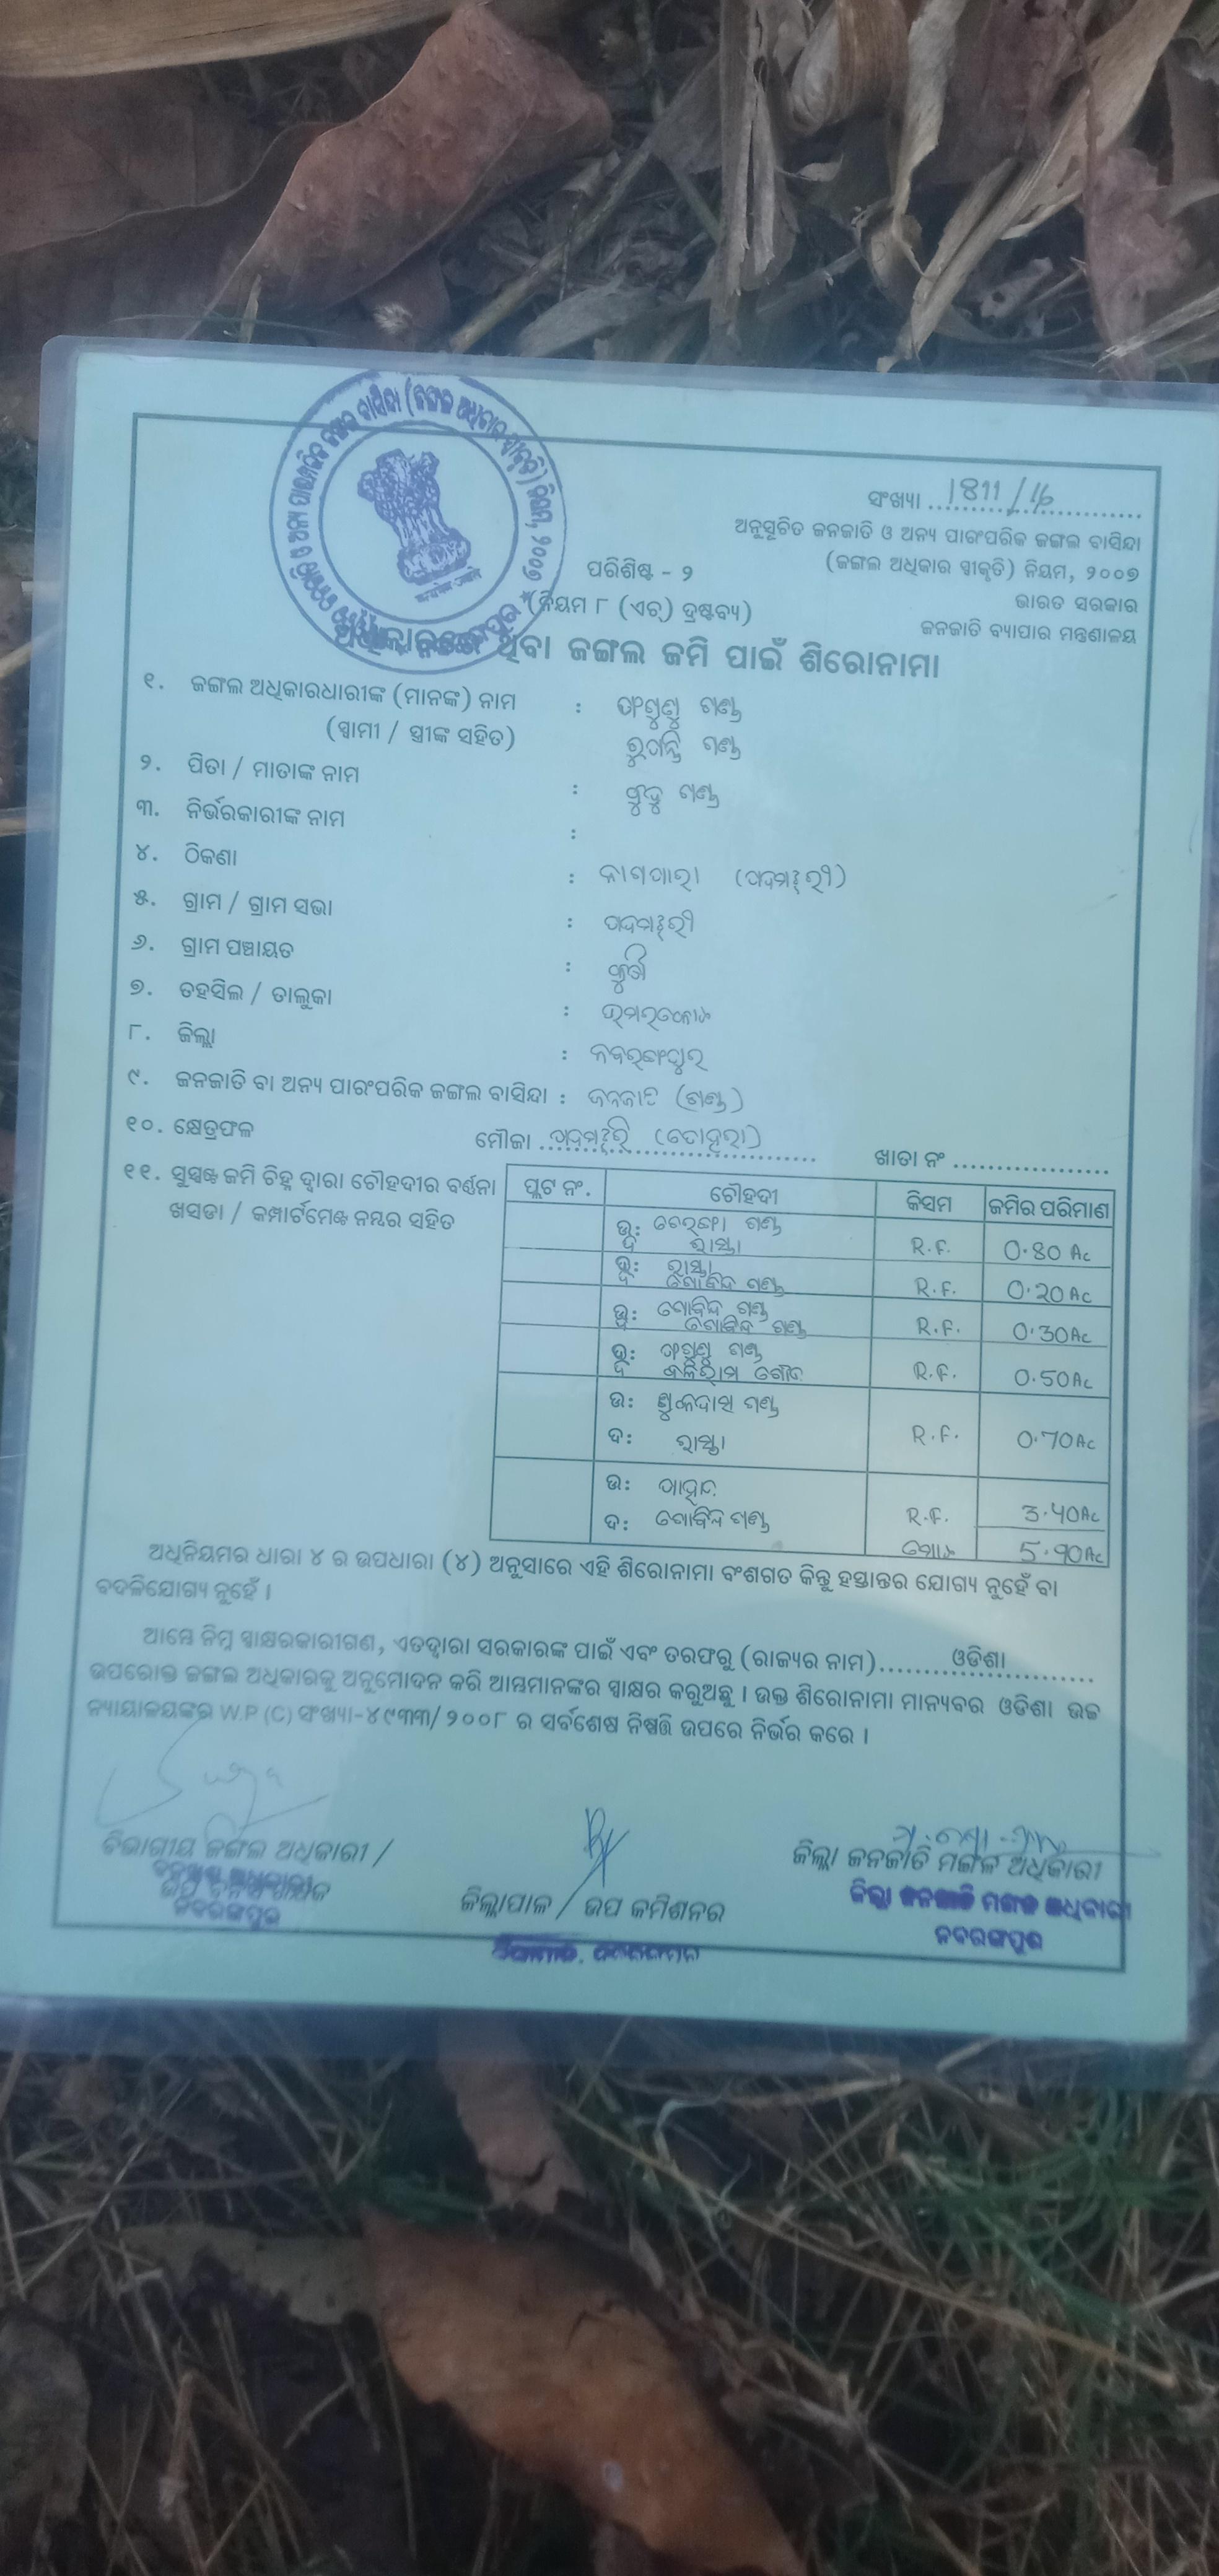 ସଂଖ୍ୟା 1811/16
ଅନୁସୂଚିତ ଜନଜାତି ଓ ଅନ୍ୟ ପାରଂପରିକ ଜଙ୍ଗଲ ବାସିନ୍ଦା
(ଜଙ୍ଗଲ ଅଧିକାର ସ୍ୱୀକୃତି) ନିୟମ, ୨୦୦୭
ଭାରତ ସରକାର
ଜନଜାତି ବ୍ୟାପାର ମନ୍ତ୍ରଣାଳୟ
ପରିଶିଷ୍ଟ - ୨
(ନିୟମ ୮ (ଏଚ୍) ଦ୍ରଷ୍ଟବ୍ୟ)
ଥିବା ଜଙ୍ଗଲ ଜମି ପାଇଁ ଶିରୋନାମା
୧. ଜଙ୍ଗଲ ଅଧିକାରଧାରୀଙ୍କ (ମାନଙ୍କ) ନାମ :
(ସ୍ୱାମୀ / ସ୍ତ୍ରୀଙ୍କ ସହିତ)
୨. ପିତା / ମାତାଙ୍କ ନାମ :
୩. ନିର୍ଭରକାରୀଙ୍କ ନାମ :
୪. ଠିକଣା :
୫. ଗ୍ରାମ / ଗ୍ରାମ ସଭା :
୬. ଗ୍ରାମ ପଞ୍ଚାୟତ :
୭. ତହସିଲ / ତାଲୁକା : ଉମରକୋଟ
୮. ଜିଲ୍ଲା : ନବରଙ୍ଗପୁର
୯. ଜନଜାତି ବା ଅନ୍ୟ ପାରଂପରିକ ଜଙ୍ଗଲ ବାସିନ୍ଦା : ଜନଜାତି (ଗଣ୍ଡ)
୧୦. କ୍ଷେତ୍ରଫଳ ମୌଜା ଖାତା ନଂ
୧୧. ସୁସ୍ପଷ୍ଟ ଜମି ଚିହ୍ନ ଦ୍ୱାରା ଚୌହଦୀର ବର୍ଣ୍ଣନା
ଖସଡା / କମ୍ପାର୍ଟମେଣ୍ଟ ନମ୍ବର ସହିତ
ପ୍ଲଟ ନଂ. ଚୌହଦୀ କିସମ ଜମିର ପରିମାଣ
ଉ: ଗଣ୍ଡ
ଦ ରାସ୍ତା R.F. 0.80 Ac
ଉ: ରାସ୍ତା
ଦ ଗୋବିନ୍ଦ ଗଣ୍ଡ R.F. 0.20 Ac
ଉ: ଗୋବିନ୍ଦ ଗଣ୍ଡ
ଗୋବିନ୍ଦ ଗଣ୍ଡ R.F. 0.30Ac
ଉ: ଗଣ୍ଡ
ଦ ବଳିରାମ ଗୌଡ R.F. 0.50Ac
ଉ: ଗଣ୍ଡ
ଦ: ରାସ୍ତା R.F. 0.70Ac
ଉ: ପାହାଡ
ଦ: ଗୋବିନ୍ଦ ଗଣ୍ଡ R.F. 3.40Ac
ମୋଟ 5.90Ac
ଅଧିନିୟମର ଧାରା ୪ ର ଉପଧାରା (୪) ଅନୁସାରେ ଏହି ଶିରୋନାମା ବଂଶଗତ କିନ୍ତୁ ହସ୍ତାନ୍ତର ଯୋଗ୍ୟ ନୁହେଁ ବା
ବଦଳିଯୋଗ୍ୟ ନୁହେଁ ।
ଆମ୍ଭେ ନିମ୍ନ ସ୍ୱାକ୍ଷରକାରୀଗଣ, ଏତଦ୍ୱାରା ସରକାରଙ୍କ ପାଇଁ ଏବଂ ତରଫରୁ (ରାଜ୍ୟର ନାମ) ଓଡିଶା
ଉପରୋକ୍ତ ଜଙ୍ଗଲ ଅଧିକାରକୁ ଅନୁମୋଦନ କରି ଆମ୍ଭମାନଙ୍କର ସ୍ୱାକ୍ଷର କରୁଅଛୁ । ଉକ୍ତ ଶିରୋନାମା ମାନ୍ୟବର ଓଡିଶା ଉଚ୍ଚ
ନ୍ୟାୟାଳୟଙ୍କର W.P (C) ସଂଖ୍ୟା-୪୯୩୩/୨୦୦୮ ର ସର୍ବଶେଷ ନିଷ୍ପତ୍ତି ଉପରେ ନିର୍ଭର କରେ ।
ବିଭାଗୀୟ ଜଙ୍ଗଲ ଅଧିକାରୀ /
ନବରଙ୍ଗପୁର
ଜିଲ୍ଲାପାଳ / ଉପ କମିଶନର
ଜିଲ୍ଲା ଜନଜାତି ମଙ୍ଗଳ ଅଧିକାରୀ
ଜିଲ୍ଲା ଜନଜାତି ମଙ୍ଗଳ ଅଧିକାରୀ
ନବରଙ୍ଗପୁର